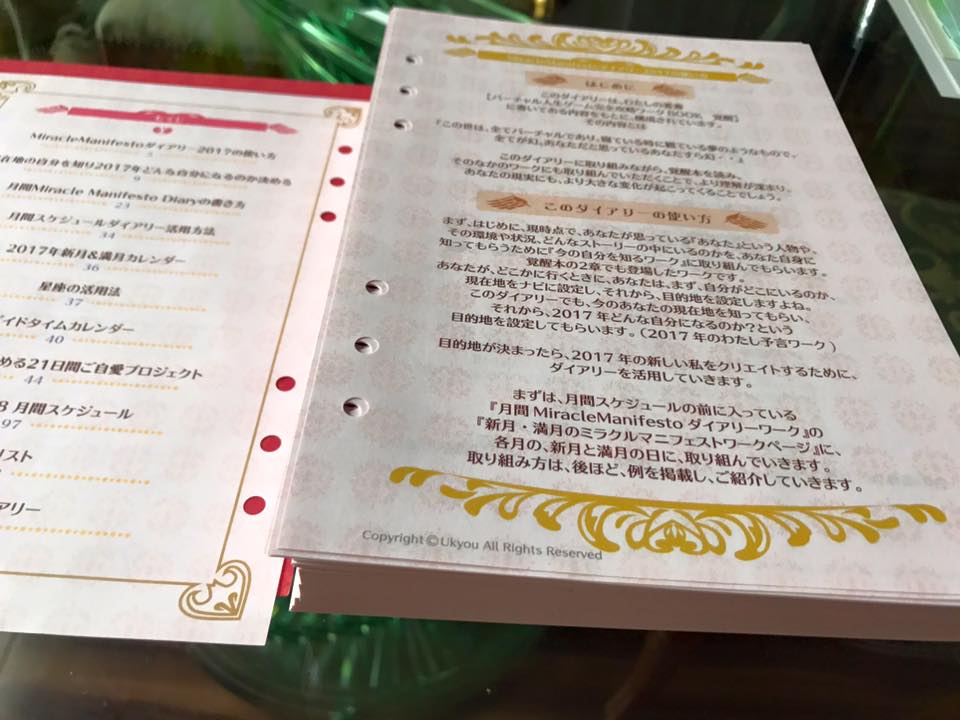 もくじ
MiracleManifestoダイアリー2017の使い方
3
在地の自分を知り2017年どんな自分になるのか決める
9
月間Miracle Manifesto Diaryの書き方
23
月間スケジュールダイアリー活用方法
34
2017年新月&満月カレンダー
36
星座の活用法
37
イドタイムカレンダー
40
める21日間ご自愛プロジェクト
44
8 月間スケジュール
97
リスト
アリー
はじめに
このダイアリーは、わたしの著書
【バーチャル人生ゲーム完全攻略ワークBOOK 覚醒】
に書いてある内容をもとに、構成されています。
その内容とは
『この世は、全てバーチャルであり、寝ている時に観ている夢のようなもので、
全てが幻。あなただと思っているあなたすら幻・・・』
このダイアリーに取り組みながら、覚醒本を読み、
そのなかのワークにも取り組んでいただくことで、より理解が深まり、
あなたの現実にも、より大きな変化が起こってくることでしょう。
このダイアリーの使い方
まず、はじめに、現時点で、あなたが思っている『あなた』という人物や、
その環境や状況、どんなストーリーの中にいるのかを、あなた自身に
知ってもらうために『今の自分を知るワーク』に取り組んでもらいます。
覚醒本の2章でも登場したワークです。
あなたが、どこかに行くときに、あなたは、まず、自分がどこにいるのか、
現在地をナビに設定し、それから、目的地を設定しますよね。
このダイアリーでも、今のあなたの現在地を知ってもらい、
それから、2017年どんな自分になるのか?という
目的地を設定してもらいます。(2017年のわたし予言ワーク)
目的地が決まったら、2017年の新しい私をクリエイトするために、
ダイアリーを活用していきます。
まずは、月間スケジュールの前に入っている
『月間MiracleManifestoダイアリーワーク』の
『新月・満月のミラクルマニフェストワークページ』に、
各月の、新月と満月の日に、取り組んでいきます。
取り組み方は、後ほど、例を掲載し、ご紹介していきます。
Copyright ©Ukyou All Rights Reserved